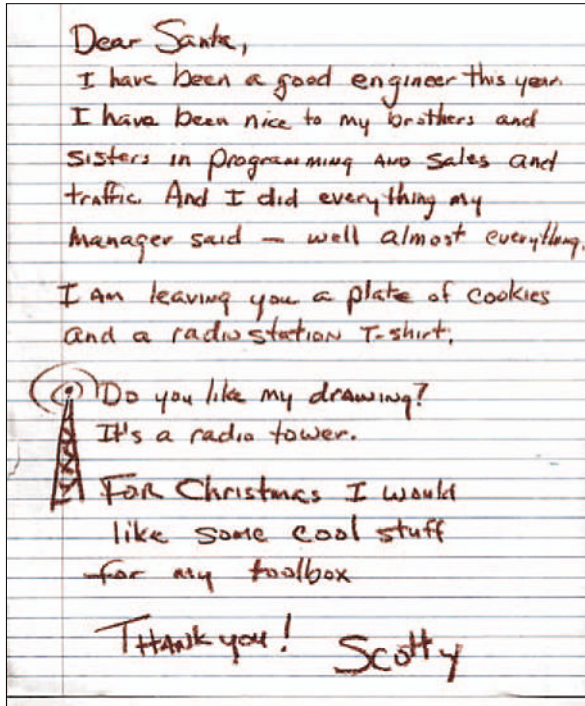 Dear Santa,
I have been a good engineer this year.
I have been nice to my brothers and
sisters in programming and sales and
traffic. And I did everything my
manager said – well almost everything.
I am leaving you a plate of cookies
and a radio station T-shirt.
Do you like my drawing?
It's a radio tower.
For Christmas I would
like some cool stuff
for my toolbox
Thank you! Scotty